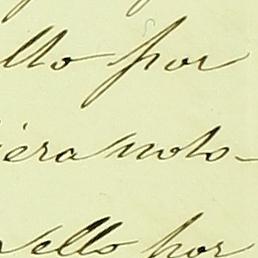 llo por
iera moto-
sello por